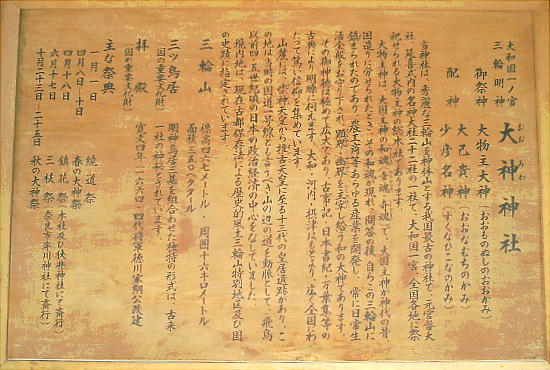 大和国一ノ宮
三輪明神
大神神社
おおみわ
御祭神 大物主大神 (おおものぬしのおおかみ)
配神 大己貴神 (おおなむちのかみ)
少彦名神 (すくなひこなのかみ)
当神社は、秀麗な三輪山を御神体とする我国最古の神社で、元官幣大
社 延喜式内の名神大社、二十二社の一社で、大和国一宮、全国各地に祭
祀せられる大物主神の総本社であります。
大物主神は、大国主神の和魂(幸魂、奇魂)で、大国主神が神代の昔
国造りに労せられたとき、その和魂が現れ、問答の後、自らこの三輪山に
鎮まられたのであり、農工商等あらゆる産業を開発し、常に日常生
活全般をお守り下され、顕界、幽界を主宰し給う和の大神であります。
その御神徳は極めて広大であり、古事記、日本書紀、万葉集等の
古典により明瞭に伺えます。大和、河内、摂津はもとより、広く全国にわ
たって篤い信仰を集めています。
山麓は、崇神天皇から推古天皇に至る十三代の皇居遺跡があり、こ
の地は当時の国道一号線とも言うべき「山の辺」の道を動脈として、飛鳥
以前四、五世紀頃の日本の政治経済の中心をなしていました。
境内地は、現在古都保存法による歴史的風土三輪山特別地区及び国
の史跡に指定されています。
三輪山 標高四六七メートル・周囲十六キロメートル
面積三五〇ヘクタール
三ツ鳥居 明神鳥居三基を組合わせた独特の形式は、古来
(国の重要文化財) 一社の神秘とされています。
拝殿 寛文四年(一六六四)四代将軍徳川家綱公改建
(国の重要文化財)
主な祭典
一月一日 繞道祭
四月八日〜十日 春の大神祭
四月十八日 鎮花祭(本社及び狭井神社にて斎行)
六月十七日 三枝祭(奈良市率川神社にて斎行)
十月二十三日〜二十五日 秋の大神祭